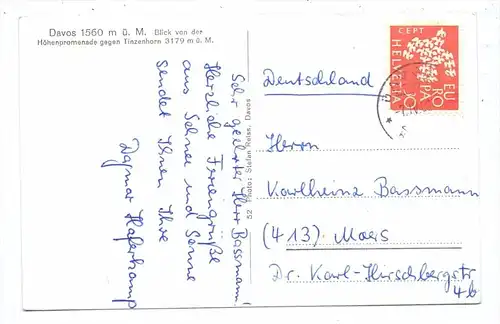 Davos 1560 m ü. M. Blick von der
Höhenpromenade gegen Tinzenhorn 3179 m ü. M.
Sehr geehrter Herr Bassmann!
Herzliche Feriengrüße
aus Schnee und Sonne
sendet Ihnen Ihre
Dagmar Haferkamp
52 Photo: Stefan Reiss, Davos
CEPT
EUROPA
HELVETIA
10
Deutschland
Herrn
Karlheinz Bassmann
(413) Moers
Dr. Karl-Hirschbergstr
4b